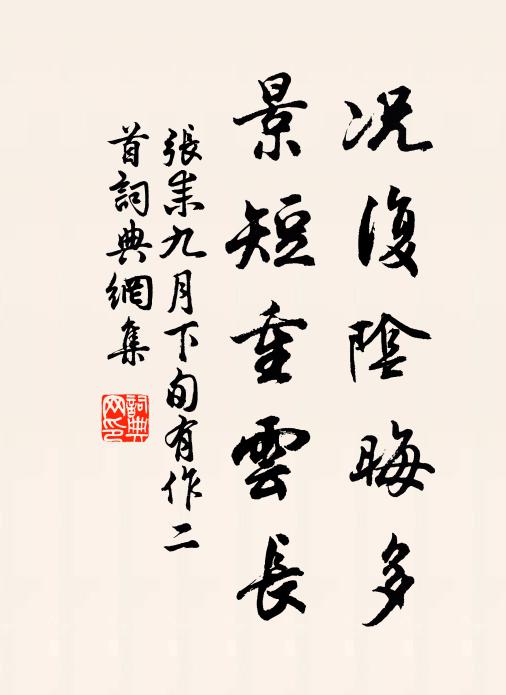 况復陰晦多
景短重雲長
張耒九月下旬有作二
首詞典網集
詞典網印